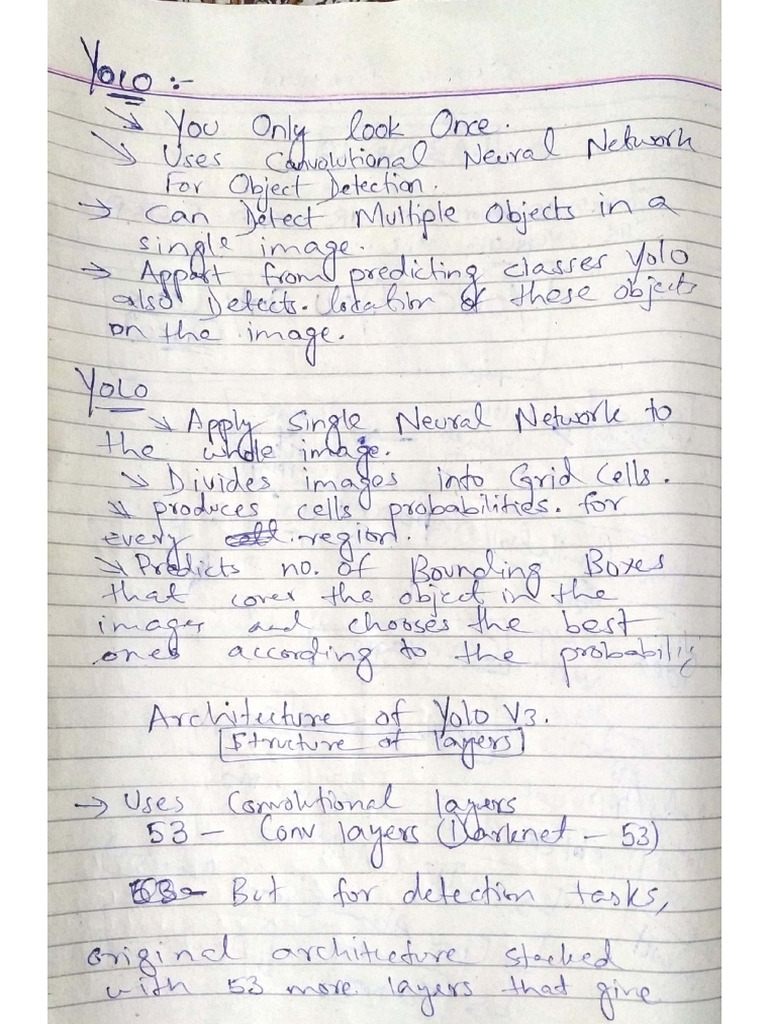 Yolo :-
→ You Only look Once.
→ Uses Convolutional Neural Network
For Object Detection.
→ Can Detect Multiple Objects in a
single image.
→ Appart from predicting classes Yolo
also Detects. location of these objects
on the image.
YOLO
→ Apply Single Neural Network to
the whole image.
→ Divides images into Grid Cells.
→ produces cells probabilities. for
every region.
→ Predicts no. of Bounding Boxes
that cover the object in the
images and chooses the best
ones according to the probabili
Architecture of Yolo V3.
Structure of layers
→ Uses Convolutional layers
53 - Conv layers (Darknet - 53)
But for detection tasks,
original architecture stacked
with 53 more layers that give